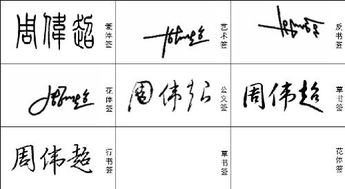 周偉超 篆体签
艺术签
反书签
花体签
周伟超 公文签
周伟超 草书签
周伟超 行书签
草书签
花体签